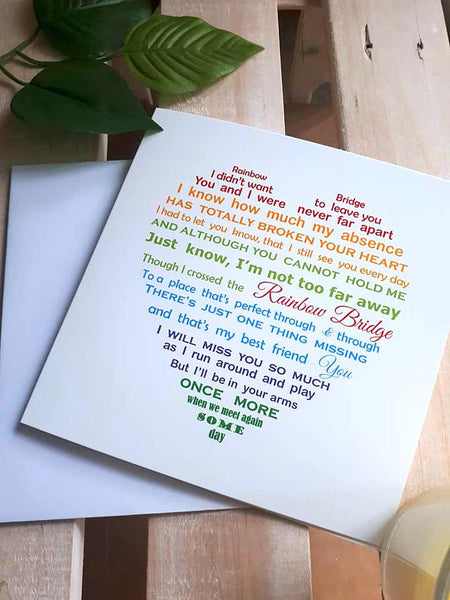 Rainbow Bridge
I didn't want to leave you
You and I were never far apart
I know how much my absence
HAS TOTALLY BROKEN YOUR HEART
I had to let you know, that I still see you every day
AND ALTHOUGH YOU CANNOT HOLD ME
Just know, I'm not too far away
Though I crossed the Rainbow Bridge
To a place that's perfect through & through
THERE'S JUST ONE THING MISSING
and that's my best friend You
I WILL MISS YOU SO MUCH
as I run around and play
But I'll be in your arms
ONCE MORE
when we meet again
SOME
day